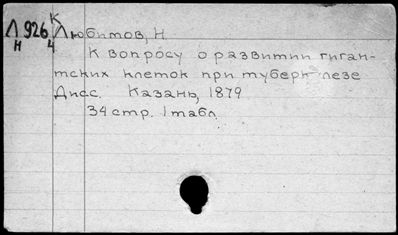 К
Л 926 Любимов, Н.
Н 4
К вопросу о развитии гиган-
тских клеток при туберкулезе
Дисс. Казань, 1879
34 стр. 1 табл.